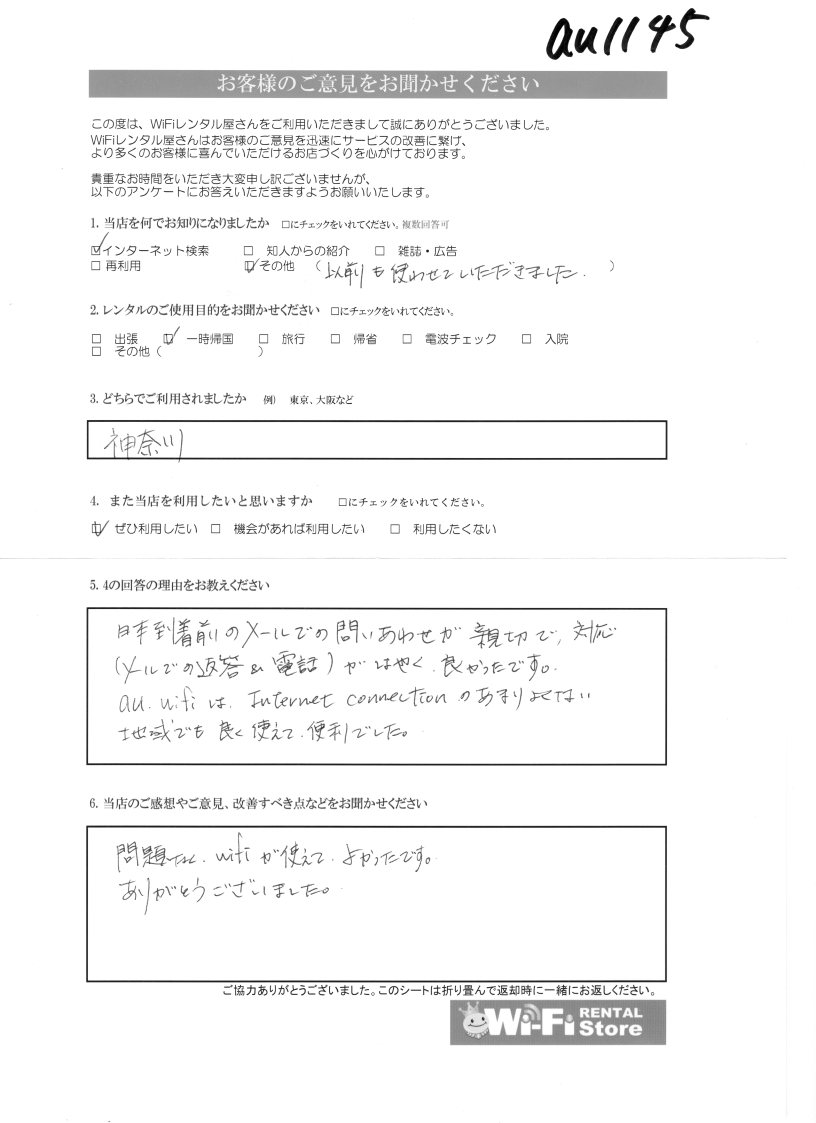 au1145
お客様のご意見をお聞かせください
この度は、WiFiレンタル屋さんをご利用いただきまして誠にありがとうございました。
WiFiレンタル屋さんはお客様のご意見を迅速にサービスの改善に繋げ、
より多くのお客様に喜んでいただけるお店づくりを心がけております。
貴重なお時間をいただき大変申し訳ございませんが、
以下のアンケートにお答えいただきますようお願いいたします。
1. 当店を何でお知りになりましたか □にチェックをいれてください。複数回答可
☑インターネット検索 □ 知人からの紹介 □ 雑誌・広告
□ 再利用 ☑その他 (以前も使わせていただきました。)
2. レンタルのご使用目的をお聞かせください □にチェックをいれてください。
□ 出張 ☑ 一時帰国 □ 旅行 □ 帰省 □ 電波チェック □ 入院
□ その他 ( )
3. どちらでご利用されましたか 例) 東京、大阪など
神奈川
4. また当店を利用したいと思いますか □にチェックをいれてください。
☑ ぜひ利用したい □ 機会があれば利用したい □ 利用したくない
5. 4の回答の理由をお教えください
日本到着前のメールでの問いあわせが 親切で、対応
(メールでの返答 & 電話) が はやく、良かったです。
au. wifi は、Internet connection のあまりよくない
地域でも 良く使えて、便利でした。
6. 当店のご感想やご意見、改善すべき点などをお聞かせください
問題なく、wifi が使えて、よかったです。
ありがとうございました。
ご協力ありがとうございました。このシートは折り畳んで返却時に一緒にお返しください。
Wi-Fi RENTAL Store